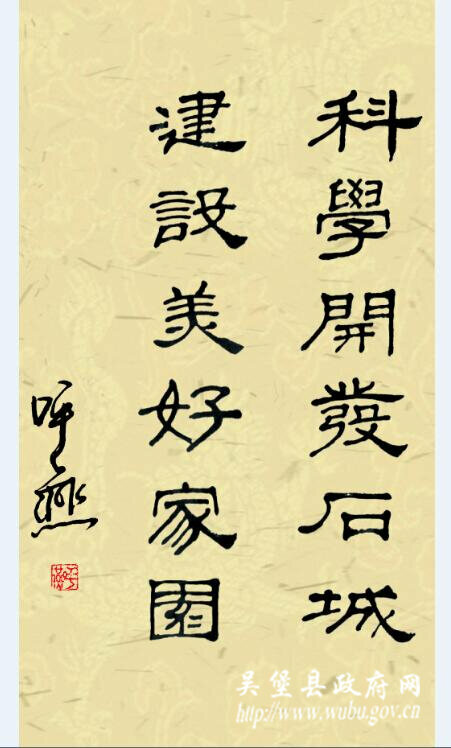 科學開發石城
建設美好家園
呼燕
吴堡县政府网
http://www.wubu.gov.cn